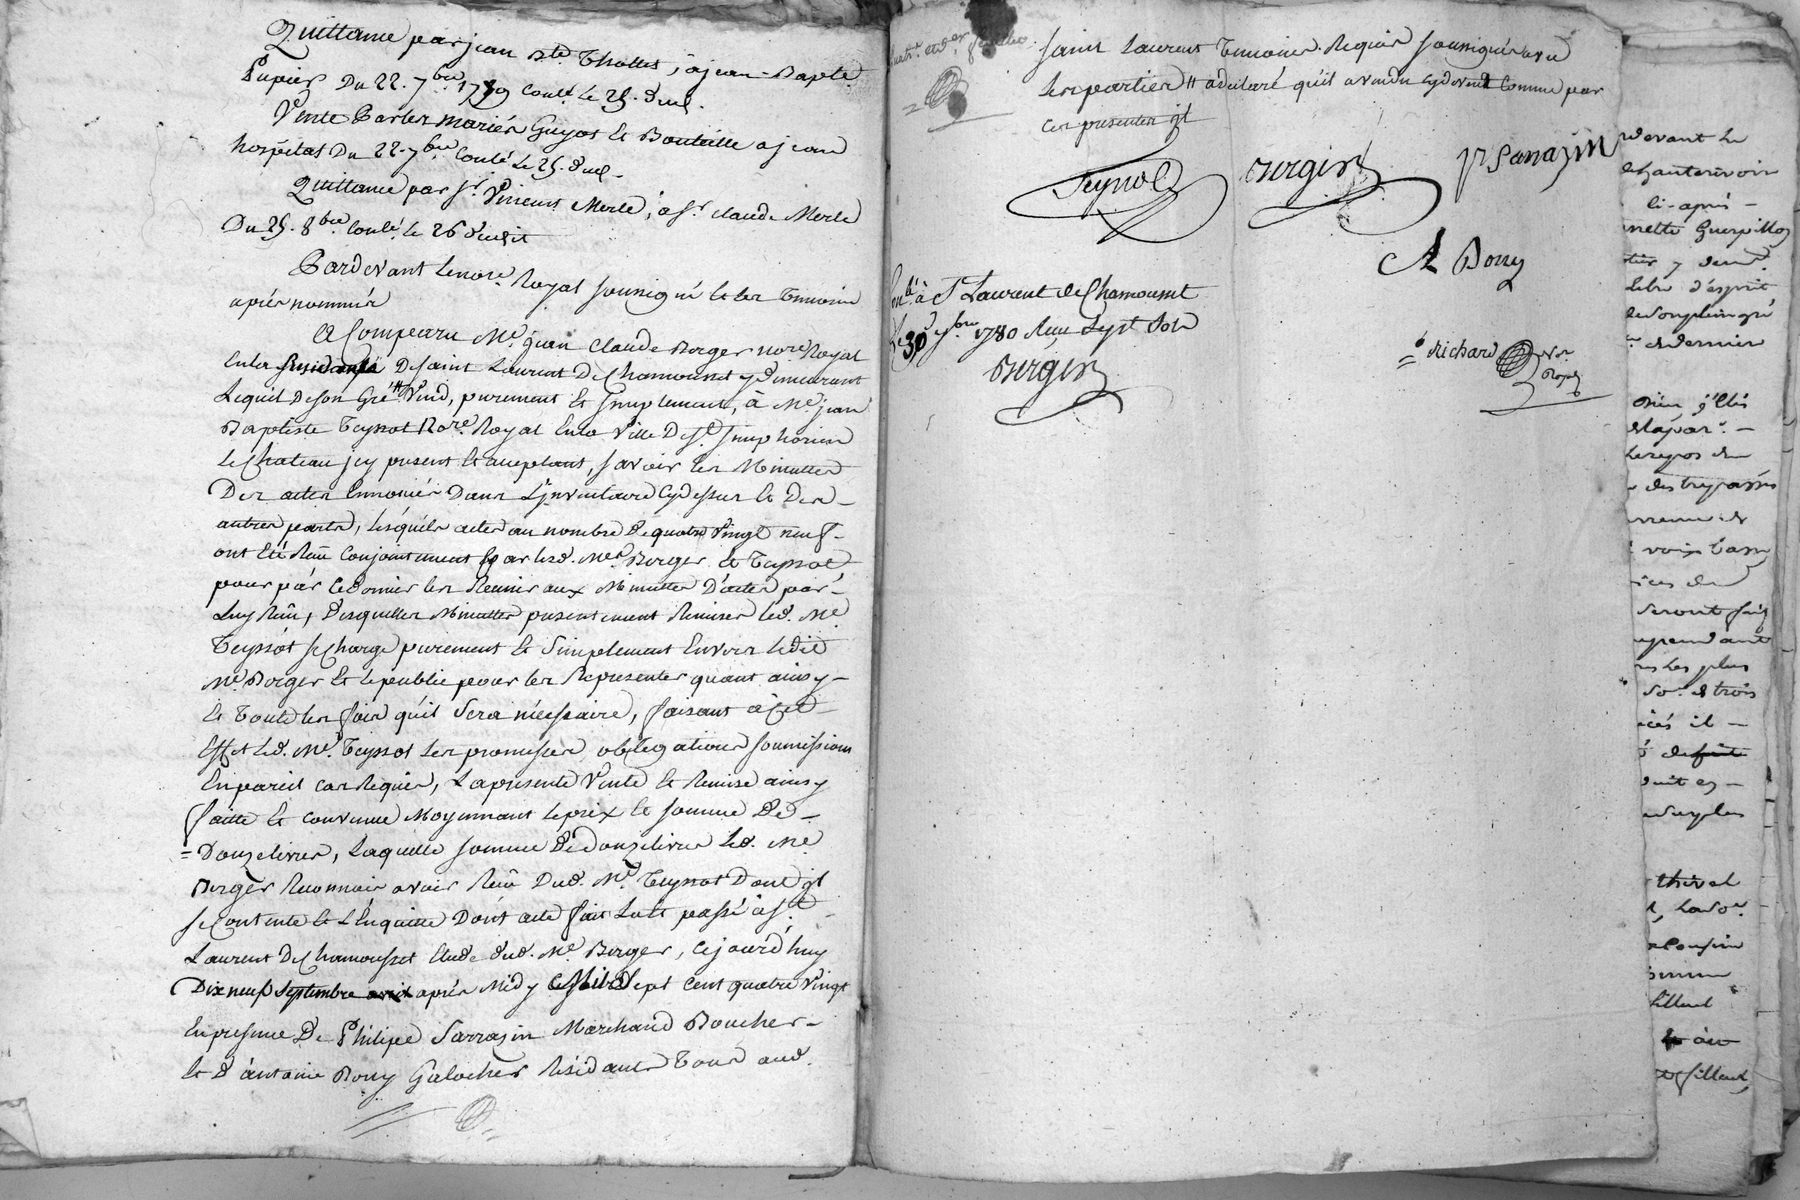 Quittance par jean Bte Thollet, à jean-Bapte
Pupier Du 22. 7bre 1779 Conlé Le 25. dud.
Vente Par les mariés Guyot et Bouteille a jean
hospital Du 22. 7bre Conlé Le 25. dud.
Quittance par Sr Vincent Merle, à Sr claude Merle
Du 25. 8bre Conlé le 26 dudit
Pardevant le nore Royal soussigné et les Temoins
après nommés
A Comparu Me jean Claude Berger nore Royal
en la Residence De saint Laurent De Chamousset y demeurant
Lequel De son Gré # Vend, purement et simplement, à Me jean
Baptiste Teyssot Nore Royal en la Ville De St simphorien
le Chateau icy present et acceptant, savoir les Minuttes
Des actes Ennoncés Dans L'jnventaire cy dessus et Des
autres parts, lesquels actes au nombre de quatre Vingt neuf
ont été Reçu conjointement par lesd. Mes Berger et Teyssot
pour par ce dernier les Reunir aux Minuttes D'actes par
Luy Reçu, Desquelles Minuttes presentement Remises led. Me
Teyssot se charge purement et simplement Envers ledit
Me Berger et le public pour les Representer quant ainsy
et Toutes les fois qu'il sera nécessaire, faisant à cet
Effet led. Me Teyssot les promesses obligations soumissions
En pareil cas Requis, La presente Vente et Remise ainsy
faitte et convenue Moyennant le prix et somme De
= Douze livres, Laquelle somme De Douze livres led. Me
Berger Reconnoit avoir Reçu Dud. Me Teyssot Dont il
se contente et L'En quitte Dont acte fait Lu et passé à St
Laurent De Chamousset Etude dud. Me Berger, cejourd'huy
Dix neuf Septembre après Midy Mil Sept Cent quatre Vingt
En presence De Philipe Sarrazin Marchand Boucher
et D'antoine Bony Galocher Résidants Tous aud.
saint Laurent Temoins Requis soussignés avec
les parties # a declaré qu'il a vendu cy devant Comme par
ces presentes il
Teyssot
Berger
P Sarrazin
A Bony
Conlé à St Laurent de Chamousset
le 30 7bre 1780 Reçu Sept Sols
Berger
Richard Nore
Royal
devant Le
chanterivoir
ci-après
nnette Guerpillon
Libre d'esprit
de son plein gré
dernier
des trepassés
seront fait
ependant
les plus
et trois
il
thevel